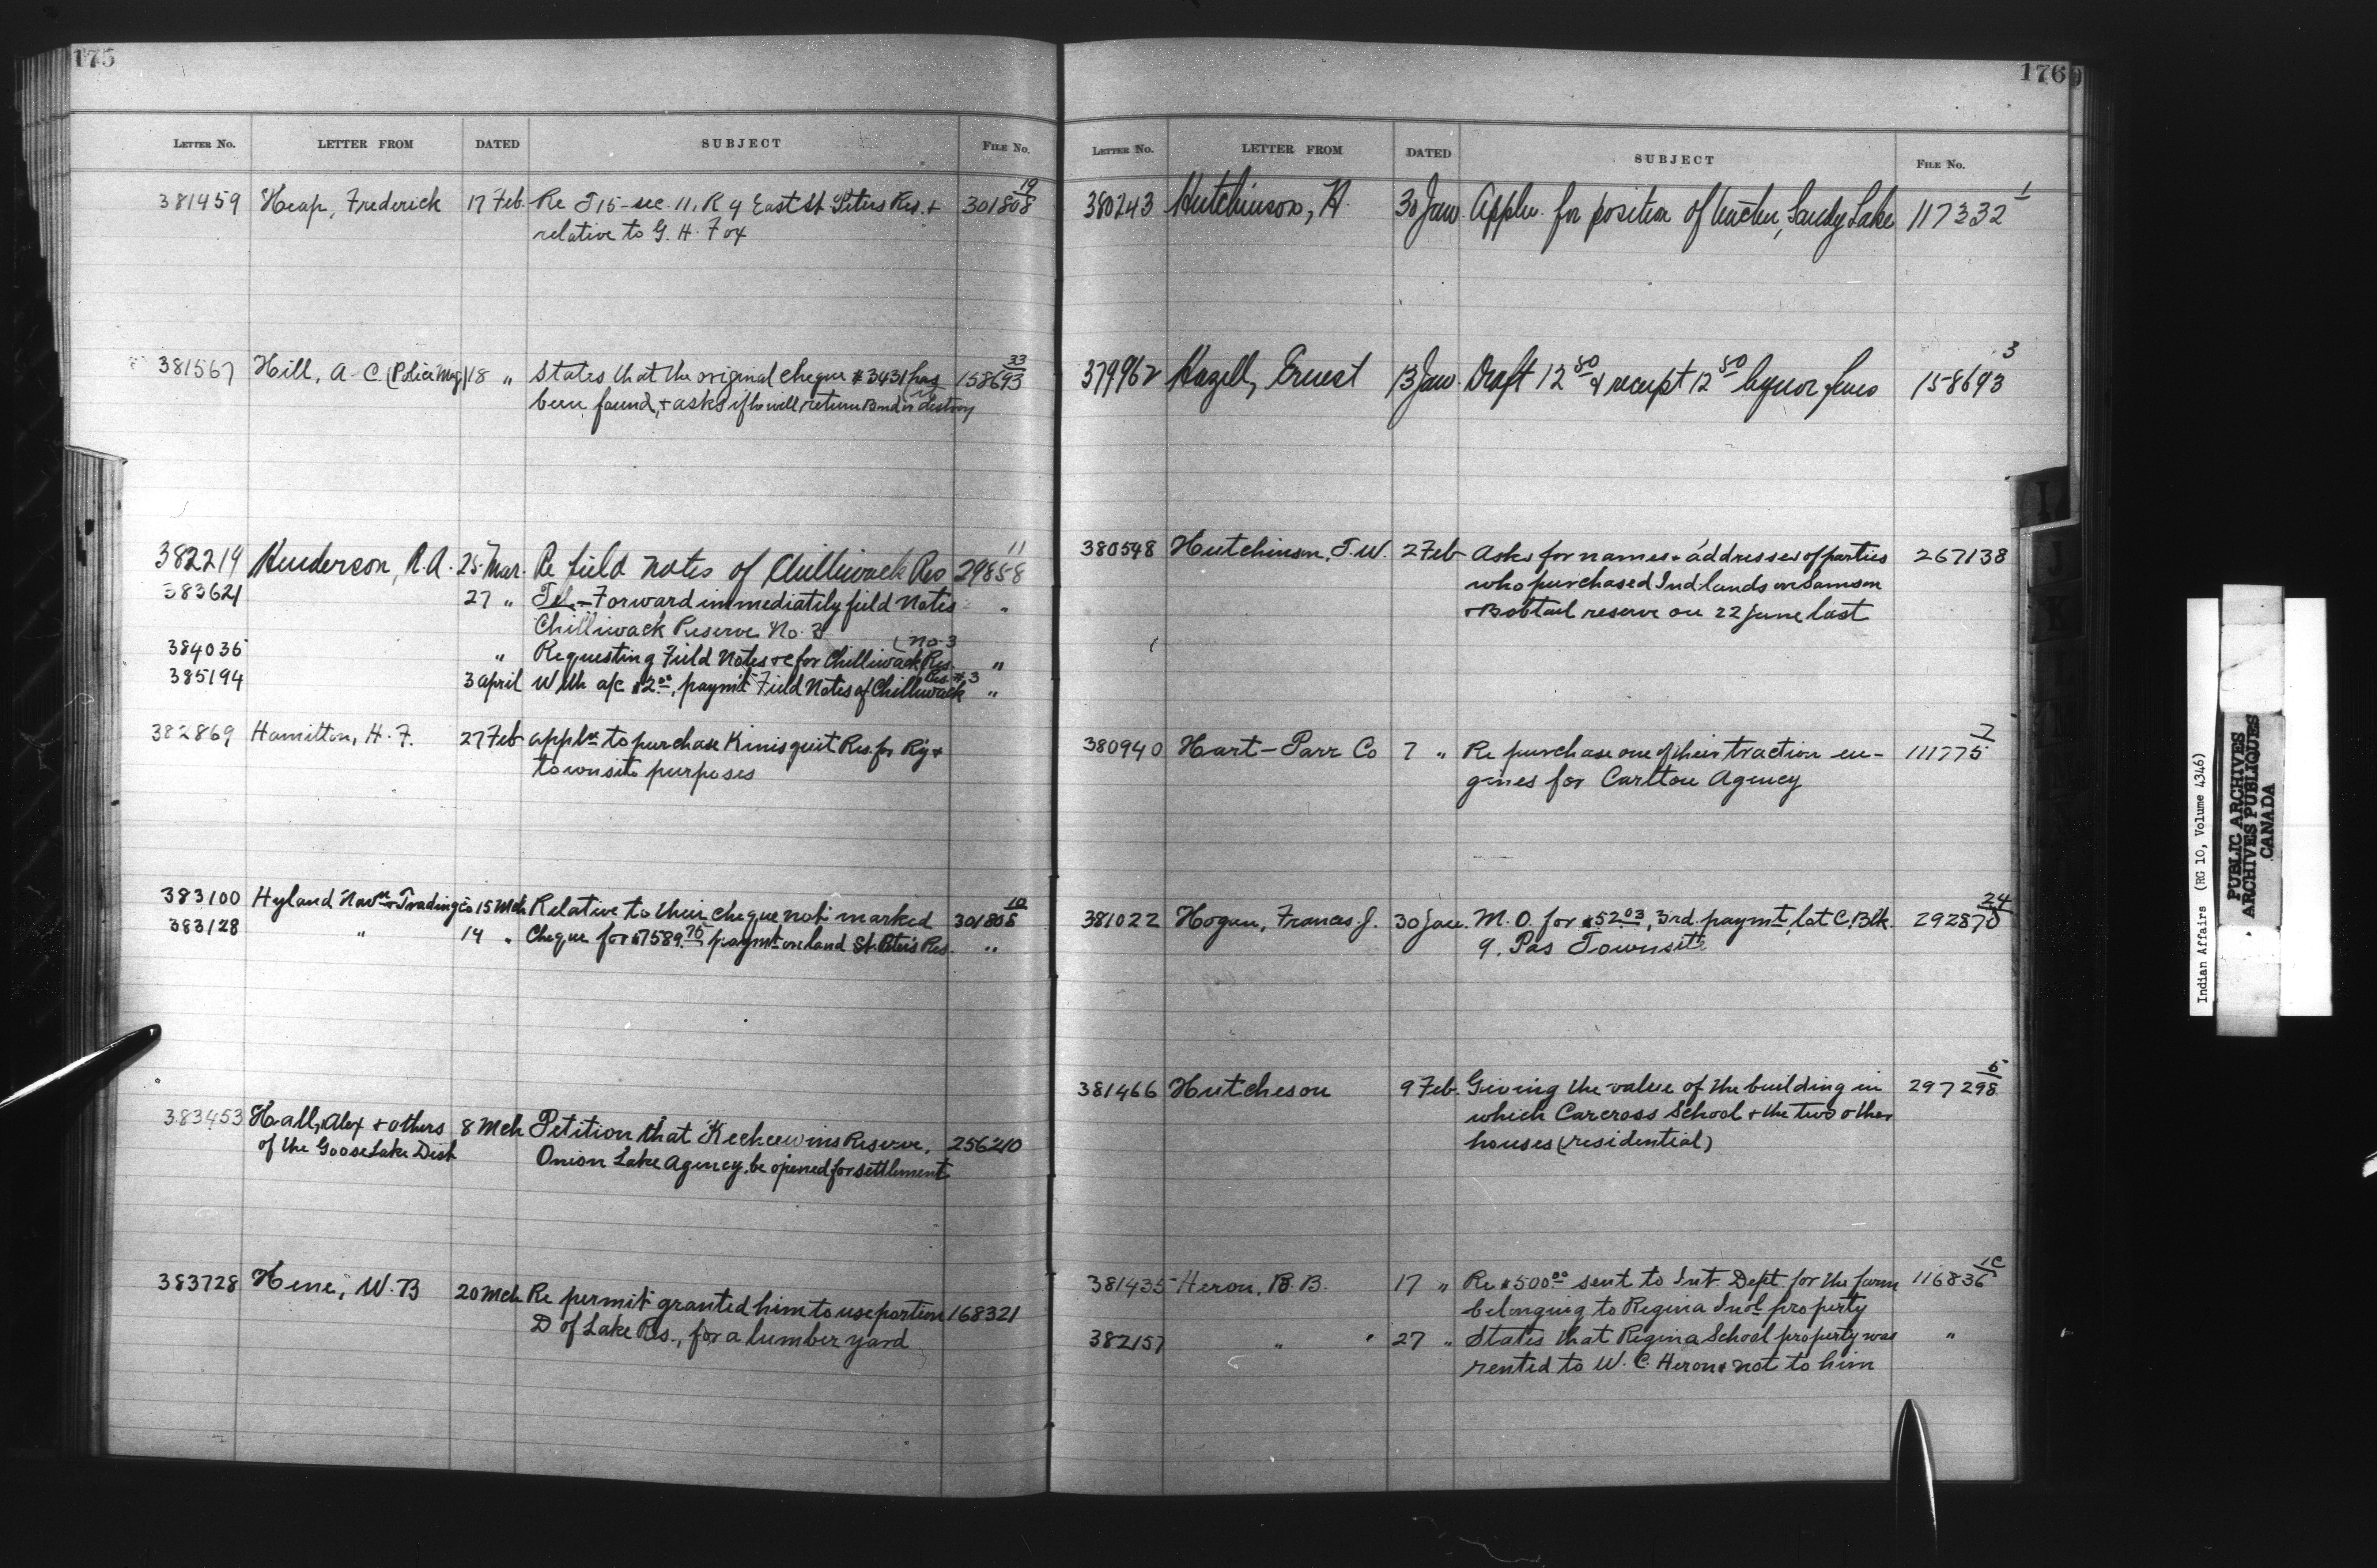 175
LETTER NO. LETTER FROM DATED SUBJECT FILE NO.
381459 Heap, Frederick 17 Feb. Re T15-sec. 11, R 4 East St. Peters Res. + 301808 19
relative to G. H. Fox
381567 Hill, A. C. (Police Mag) 18 " States that the original cheque #3431 has 158693 33
been found, + asks if he will return Bond or destroy it
382219 Henderson, R. A. 25 Mar. Re field notes of Chilliwack Res 29858 11
383621 27 " Tel- Forward immediately field Notes "
Chilliwack Reserve No. 3
384036 " Requesting Field Notes &c for Chilliwack Res. No. 3 "
385194 3 april With a/c $2.00, paymt Field Notes of Chilliwack Res. #3 "
382869 Hamilton, H. F. 27 Feb appln to purchase Kinisquit Res. for Ry +
townsite purposes
383100 Hyland Navn + Trading Co 15 Mch Relative to their cheque not marked 301808 10
383128 " 14 " Cheque for $7589.75 paymt on land St. Peters Res. "
383453 Hall, Alex + others 8 Mch Petition that Keeheewins Reserve, 256210
of the Goose Lake Dist Onion Lake Agency, be opened for settlement
383728 Hene, W. B 20 Mch Re permit granted him to use portion 168321
D of Lake Res., for a lumber yard
176
LETTER NO. LETTER FROM DATED SUBJECT FILE NO.
380243 Hutchinson, H. 30 Jan. Appln. for position of teacher, Sandy Lake 117332 1
379962 Hazell, Ernest 13 Jan. Draft 12 50 & receipt 12 50 liquor fines 158693 3
380548 Hutchinson, T. W. 2 Feb Asks for names + addresses of parties 267138
who purchased Ind lands on Samson
+ Bobtail reserve on 22 June last
380940 Hart-Parr Co 7 " Re purchase one of their traction en- 111775 7
gines for Carlton Agency
381022 Hogan, Francis J. 30 Jan. M. O. for $52.03, 3rd. paymt, lot C, Blk. 292870 24
9. Pas Townsite
381466 Hutcheson 9 Feb. Giving the value of the building in 297298 5
which Carcross School + the two other
houses (residential)
381435 Heron, B. B. 17 " Re $500.00 sent to Int. Dept. for the farm 116836 1C
belonging to Regina Indl property
382157 " " 27 " States that Regina School property was "
rented to W. C. Heron & not to him
I
Indian Affairs (RG 10, Volume 4346)
PUBLIC ARCHIVES
ARCHIVES PUBLIQUES
CANADA